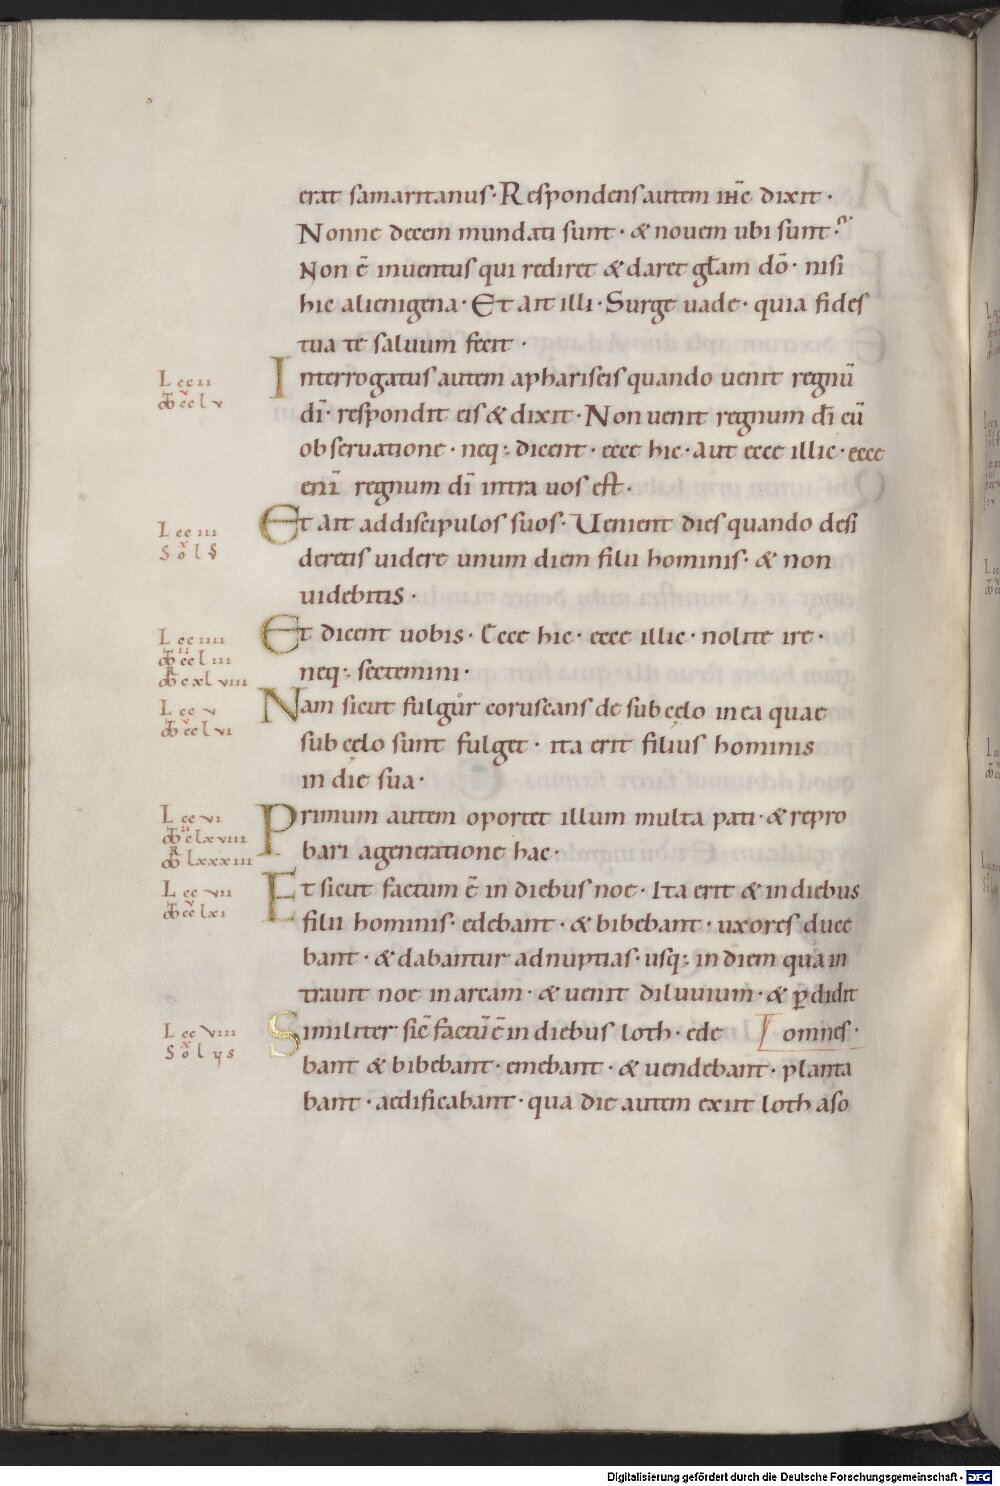 erat samaritanus· Respondens autem ihc̄ dixit·
Nonne decem mundati sunt· & novem ubi sunt·
Non ē inventus qui rediret & daret gl̄am dō· nisi
hic alienigena· Et ait illi· Surge uade· quia fides
tua te saluum fecit·
L cc ii
Interrogatus autem a phariseis quando uenit regnū
dī· respondit eis & dixit· Non uenit regnum dī cū
observatione· neq; dicent· ecce hic· aut ecce illic· ecce
enī regnum dī intra uos est·
L cc iii
Et ait ad discipulos suos· Uenient dies quando desi
S o l
deretis uidere unum diem filii hominis· & non
uidebitis·
L cc iiii
Et dicent uobis· Ecce hic· ecce illic· nolite ire·
neq; sectemini·
L cc v
Nam sicut fulgur coruscans de sub cęlo in ea quae
sub cęlo sunt fulget· ita erit filius hominis
in die sua·
L cc vi
Primum autem oportet illum multa pati· & repro
bari a generatione hac·
L cc vii
Et sicut factum ē in diebus noe· Ita erit & in diebus
filii hominis· edebant· & bibebant· uxores duce
bant· & dabantur ad nuptias· usq; in diem qua in
trauit noe in arcam· & uenit diluuium· & p̲didit
L cc viii
Similiter sic̄ factū ē in diebus loth· ede omnes·
bant & bibebant· emebant· & uendebant· planta
bant· aedificabant· qua die autem exiit loth a so
Digitalisierung gefördert durch die Deutsche Forschungsgemeinschaft - DFG